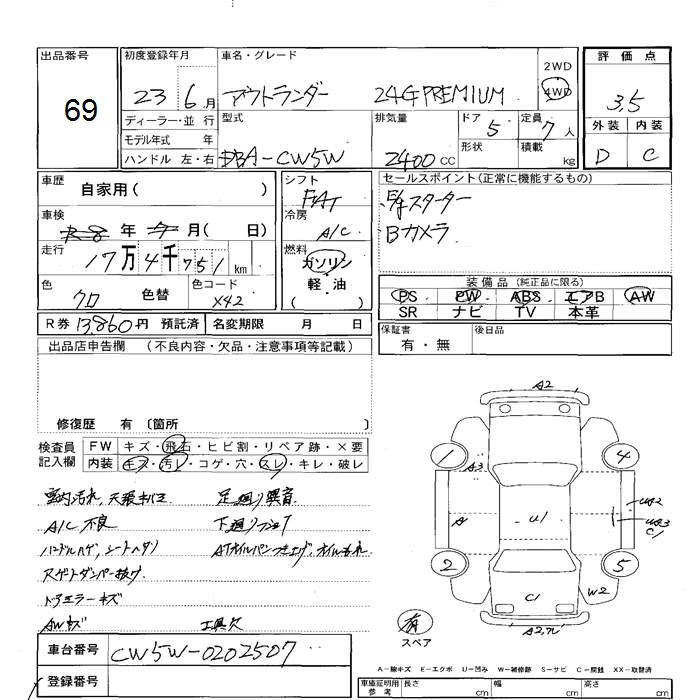 出品番号
69
初度登録年月
23 6月
車名・グレード
アウトランダー 24G PREMIUM
2WD
4WD
評価点
3.5
外装 内装
D C
ディーラー・並行
モデル年式 年
ハンドル 左・右
型式
DBA-CW5W
排気量
2400cc
ドア 5
形状
定員 7人
積載 kg
車歴
自家用( )
車検
年 月( 日)
走行
17万4千751km
色
クロ
色替
色コード
X42
シフト
FAT
冷房
A/C
燃料
ガソリン
軽・油
( )
セールスポイント(正常に機能するもの)
E/gスターター
Bカメラ
装備品(純正品に限る)
PS PW ABS エアB AW
SR ナビ TV 本革
保証書
有・無
後日品
R券 13,860円 預託済
名変期限 月 日
出品店申告欄 (不良内容・欠品・注意事項等記載)
修復歴 有〔箇所 〕
検査員
記入欄
FW キズ・飛石・ヒビ割・リペア跡・×要
内装 キズ・汚レ・コゲ・穴・スレ・キレ・破レ
室内汚れ、天張キバミ 足廻り異音
A/C不良 下廻りサビ
ハンドルハゲ、シートヘタリ
AWキズ 工具欠
車台番号 CW5W-0202507
登録番号
A2
1
4
A3
A
U1
UA2
UA3
C1
2
5
C1
W2
有
スペア
A-線キズ E-エクボ U-凹み W-補修跡 S-サビ C-腐蝕 XX-取替済
車庫証明用
参考
長さ cm 幅 cm 高さ cm